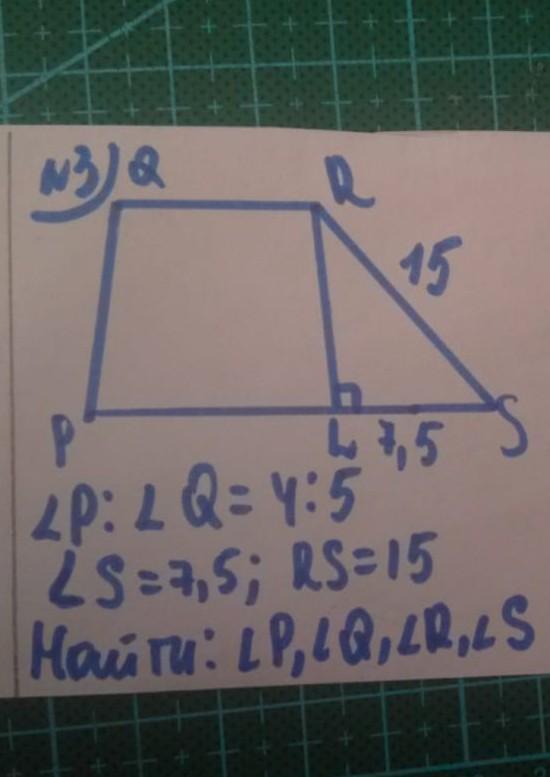 №3) Q R
15
P L 7,5 S
∠P:∠Q=4:5
LS=7,5; RS=15
Найти: ∠P,∠Q,∠R,∠S